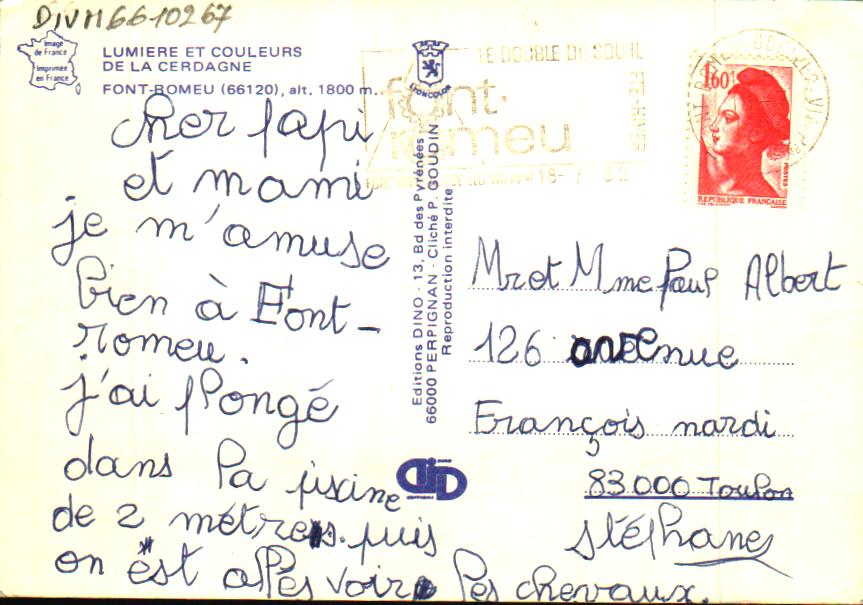 DIVM6610267
Image
de France
Imprimée
en France
LUMIERE ET COULEURS
DE LA CERDAGNE
FONT-ROMEU (66120), alt. 1800 m.
LYONCOLOR
LE DOUBLE DE SOLEIL
ETE-HIVER
font-
romeu
18-7 82
1,60
POSTES
REPUBLIQUE FRANÇAISE
cher papi
et mami
je m'amuse
bien à Font-
romeu.
j'ai plongé
dans la piscine
de 2 métres. puis
on est allés voir les chevaux.
Editions DINO - 13, Bd des Pyrénées
66000 PERPIGNAN - Cliché P. GOUDIN
Reproduction interdite
Mr et Mme Paul Albert
126 avenue
François nardi
83000 Toulon
stéphane